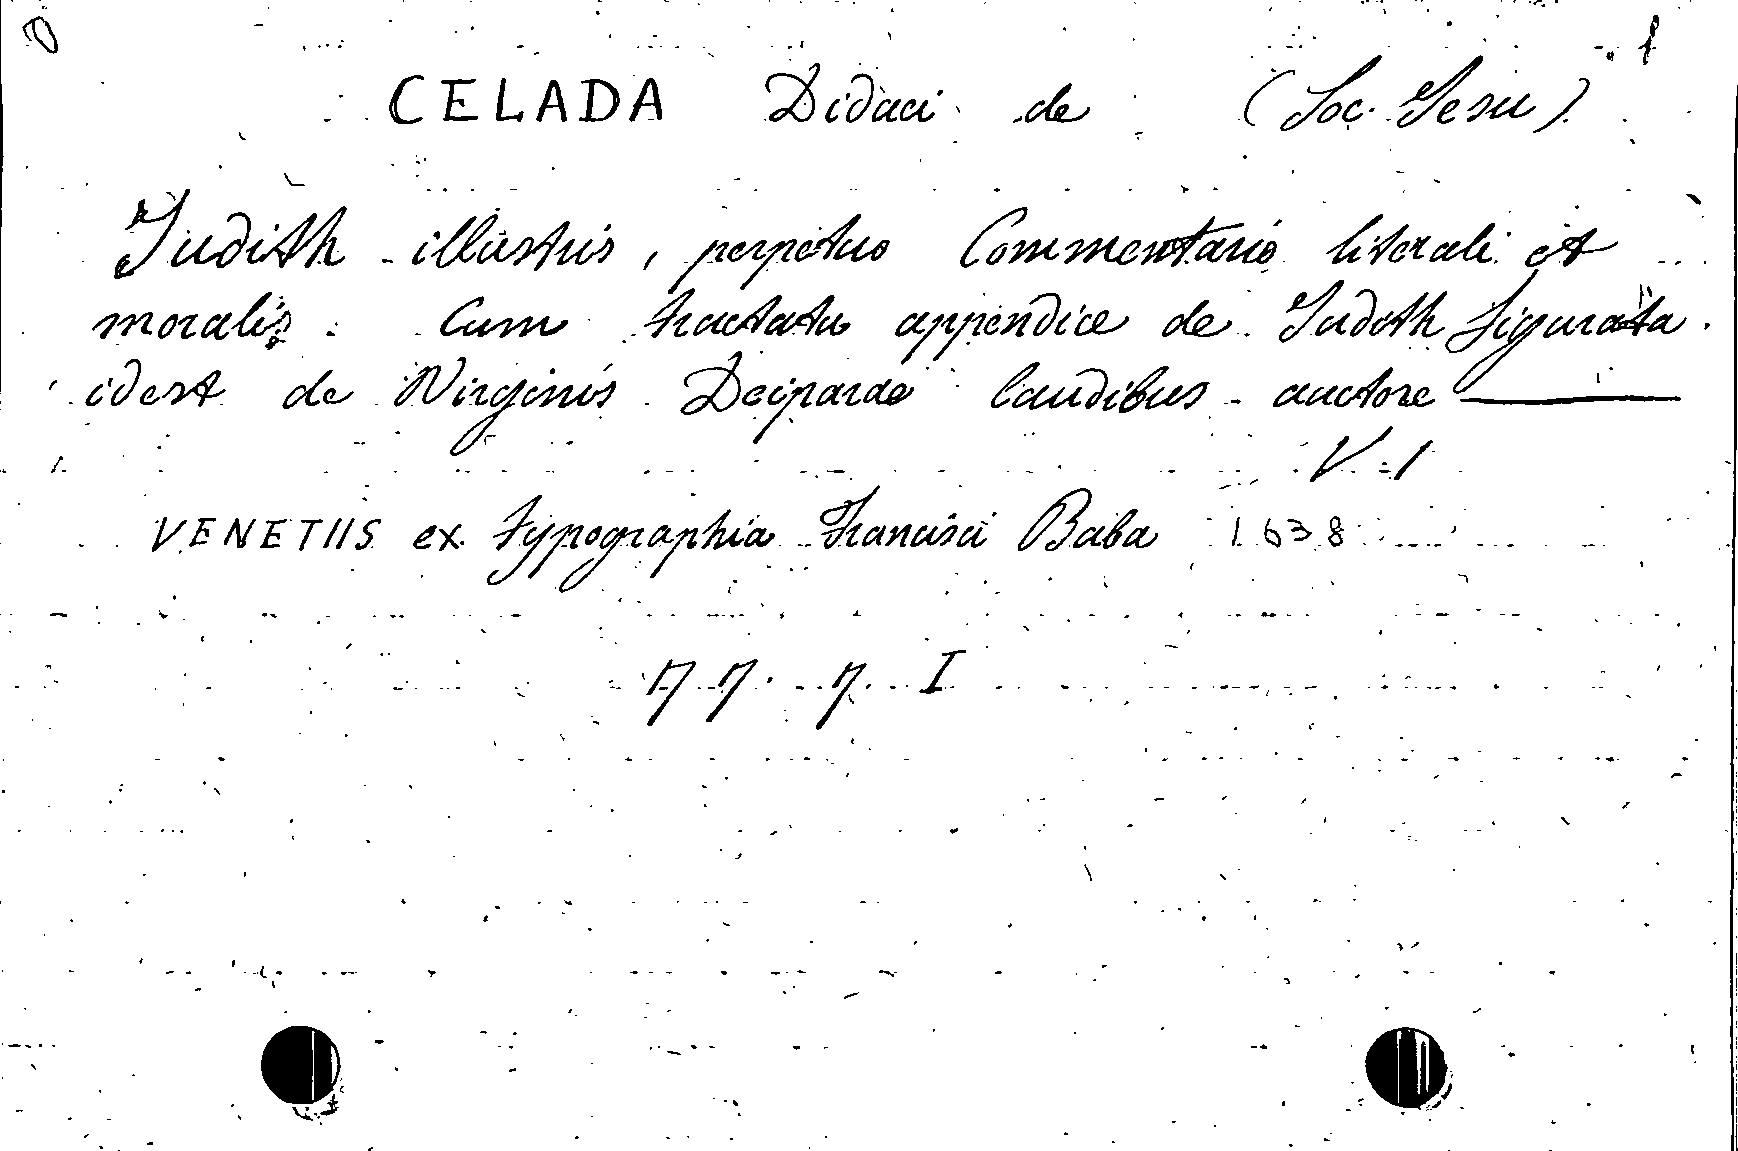 CELADA Didaci de (Soc. Iesu)
Judith illustris, perpetuo Commentario literali et
moralis. Cum tractatu appendice de Judith figurata.
idest de Virginis Deiparae laudibus auctore ———
V. 1
VENETIIS ex typographia Francisci Baba 1638